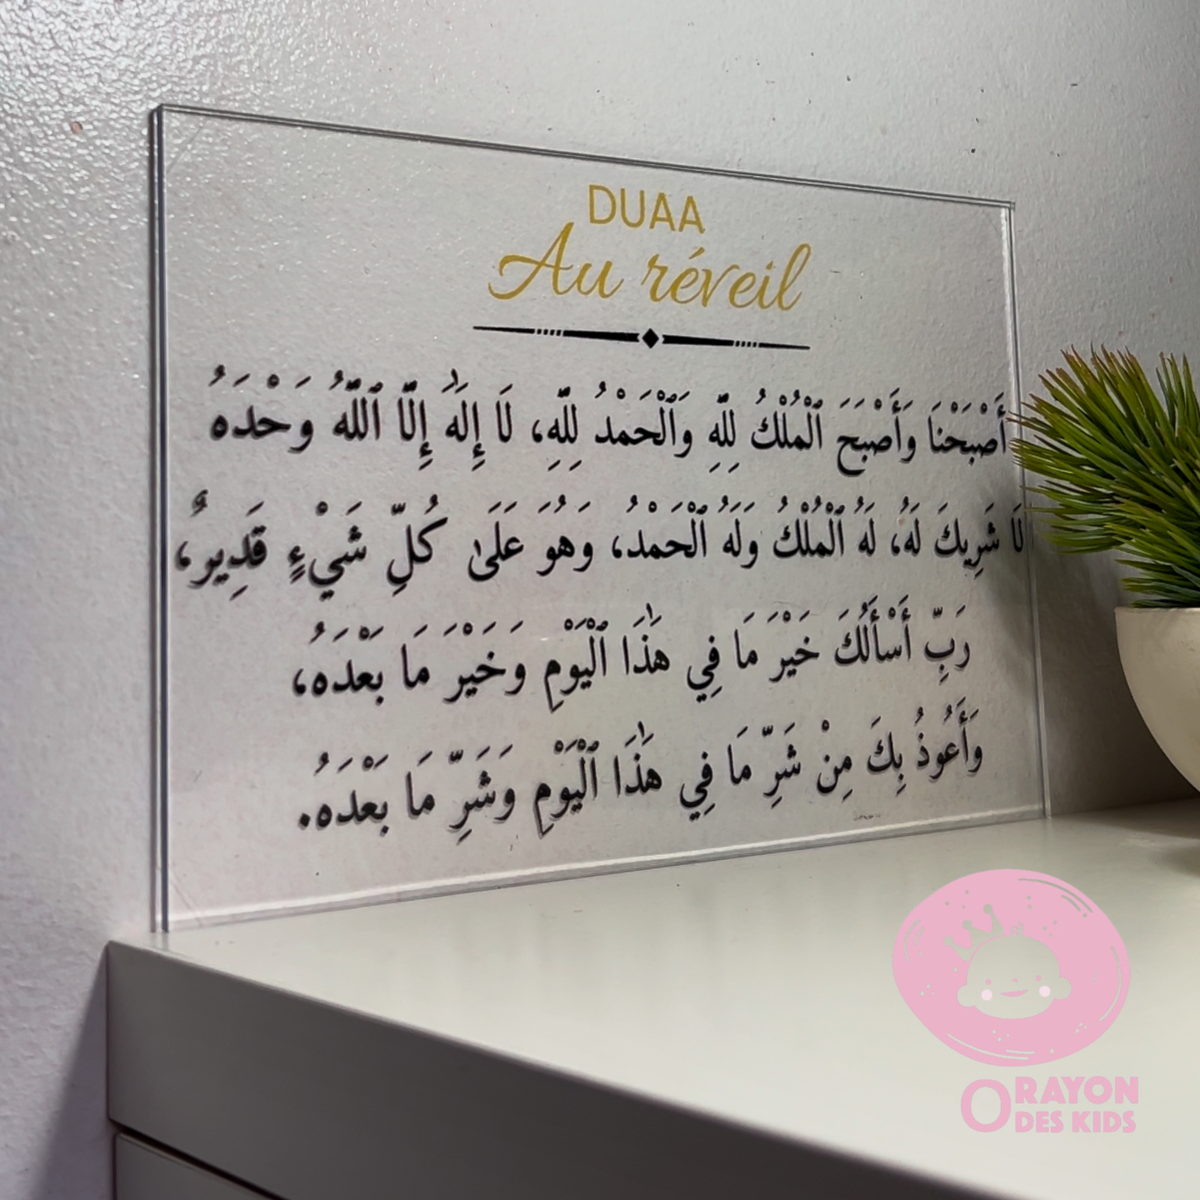 DUAA
Au réveil
أَصْبَحْنَا وَأَصْبَحَ ٱلْمُلْكُ لِلَّهِ وَٱلْحَمْدُ لِلَّهِ، لَا إِلَٰهَ إِلَّا ٱللَّهُ وَحْدَهُ
لَا شَرِيكَ لَهُ، لَهُ ٱلْمُلْكُ وَلَهُ ٱلْحَمْدُ، وَهُوَ عَلَىٰ كُلِّ شَيْءٍ قَدِيرٌ،
رَبِّ أَسْأَلُكَ خَيْرَ مَا فِي هَٰذَا ٱلْيَوْمِ وَخَيْرَ مَا بَعْدَهُ،
وَأَعُوذُ بِكَ مِنْ شَرِّ مَا فِي هَٰذَا ٱلْيَوْمِ وَشَرِّ مَا بَعْدَهُ.
O RAYON
DES KIDS